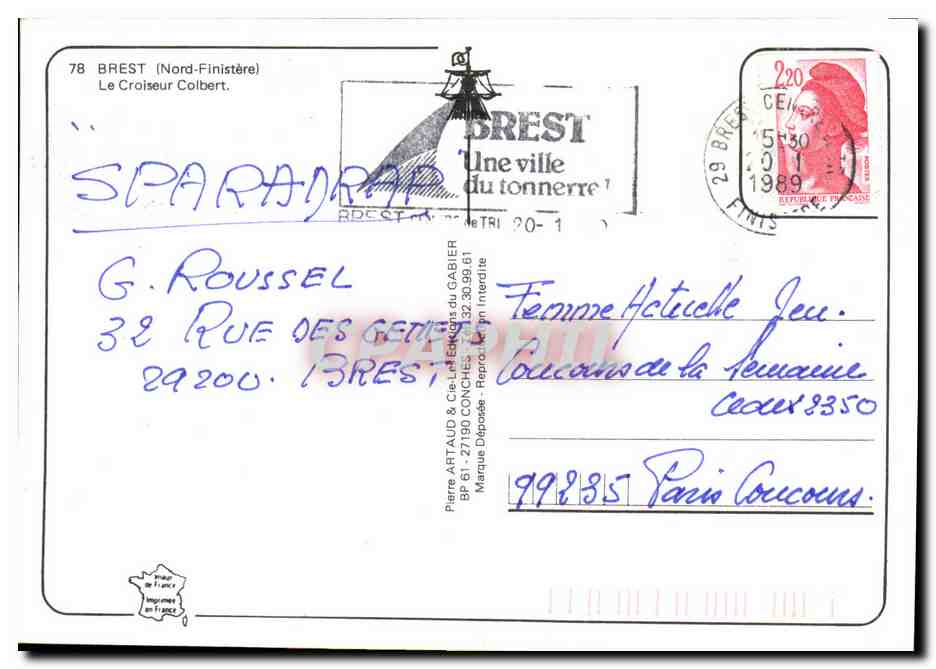 78 BREST (Nord-Finistère)
Le Croiseur Colbert.
BREST
Une ville
du tonnerre!
BREST de TRI 20-1
29 BREST CENTRE
15-30
20-1
1989
FINISTERE
2,20
REPUBLIQUE FRANCAISE
SPARADRAP
G. ROUSSEL
32 RUE DES GENETS
29200. BREST
Pierre ARTAUD & Cie-Les Editions du GABIER
BP 61 - 27190 CONCHES - Tél. 32.30.99.61
Marque Déposée - Reproduction Interdite
CPAPHIL
Femme Actuelle Jeu.
Concours de la Semaine
Cedex 2350
99235 Paris Concours.
Image
de France
Imprimée
en France